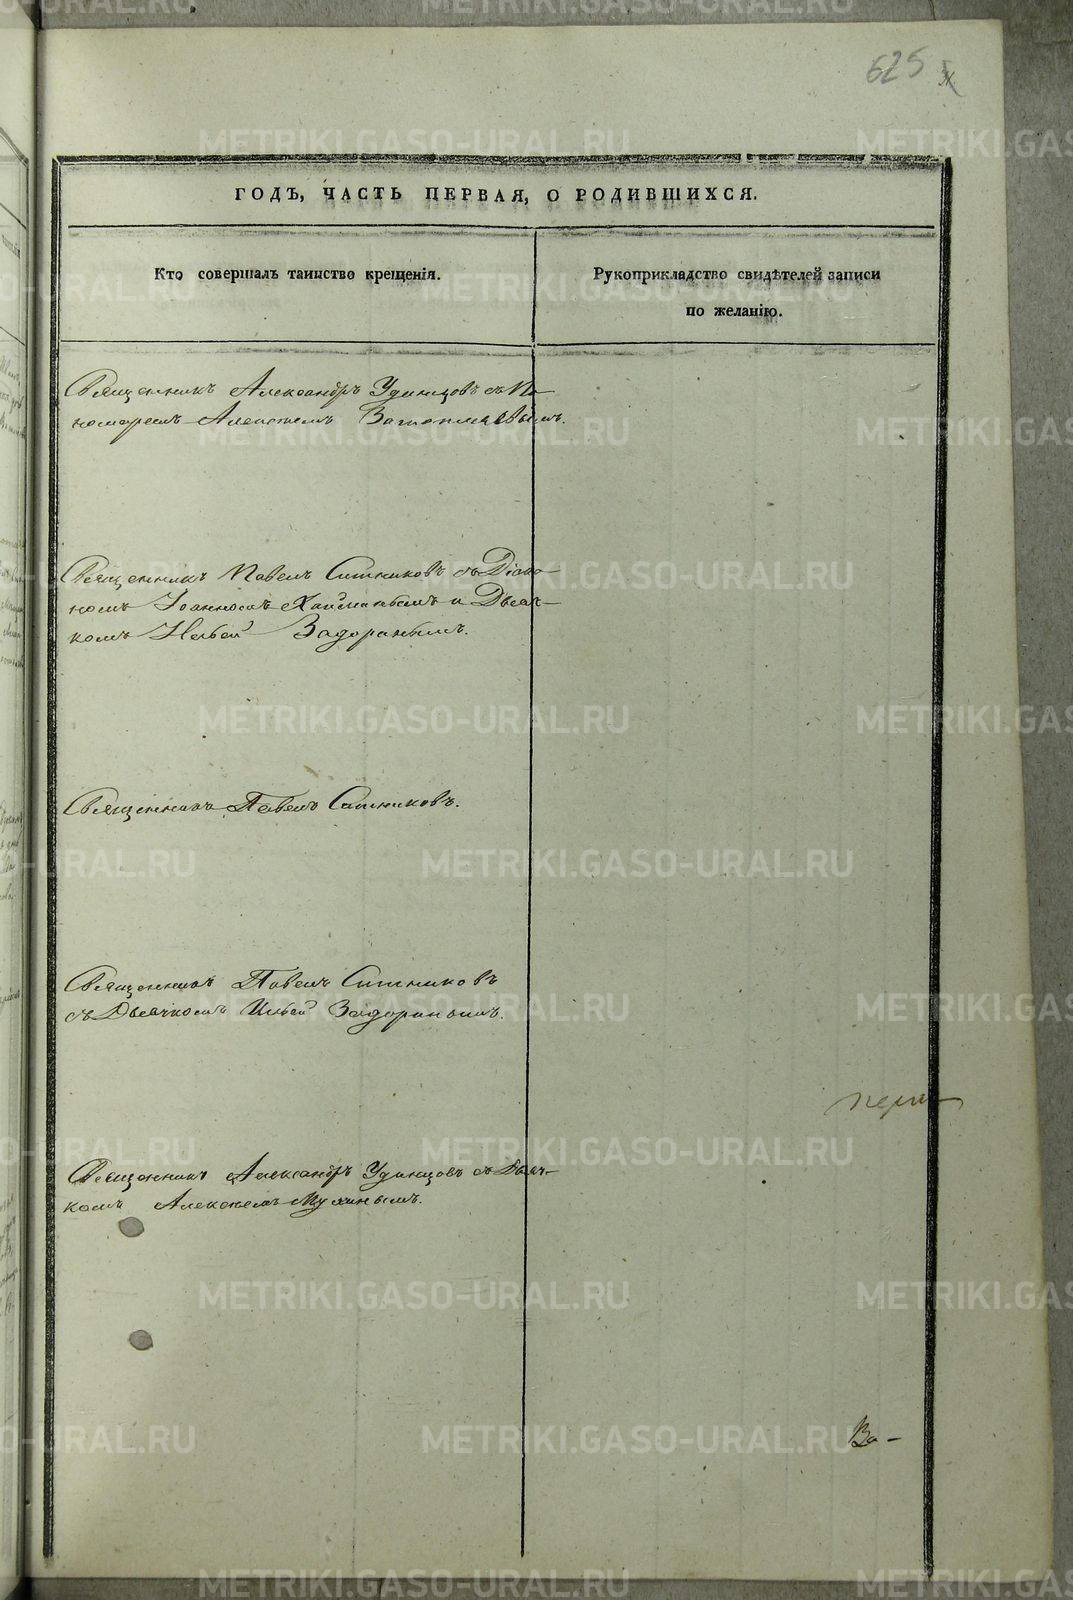 625
ГОДЪ, ЧАСТЬ ПЕРВАЯ, О РОДИВШИХСЯ.
Кто совершалъ таинство крещенія.
Рукоприкладство свидѣтелей записи
по желанію.
Священникъ Александръ Удинцовъ съ По-
номаремъ Алексѣемъ
Священникъ Павелъ Ситниковъ съ Діако-
номъ Іоанномъ и Дьяч-
комъ Ильей Задоринымъ.
Священникъ Павелъ Ситниковъ.
Священникъ Павелъ Ситниковъ
съ Дьячкомъ Ильей Задоринымъ.
Священникъ Александръ Удинцовъ съ Дьяч-
комъ Алексѣемъ Мухинымъ.
Во-
METRIKI.GASO-URAL.RU